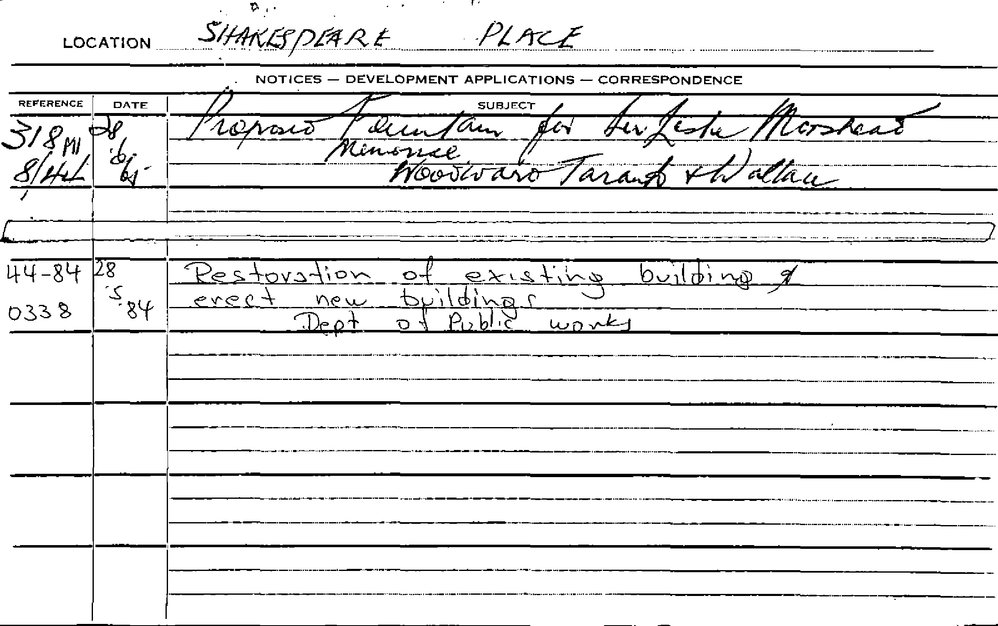 LOCATION SHAKESPEARE PLACE
NOTICES — DEVELOPMENT APPLICATIONS — CORRESPONDENCE
REFERENCE DATE SUBJECT
318 28 Proposed Fountain for Sir Leslie Morshead
.6. Memorial
65 Woodward Taranto & Wallace
44-84 28 Restoration of existing building &
.5. erect new buildings
0338 84 Dept of Public works